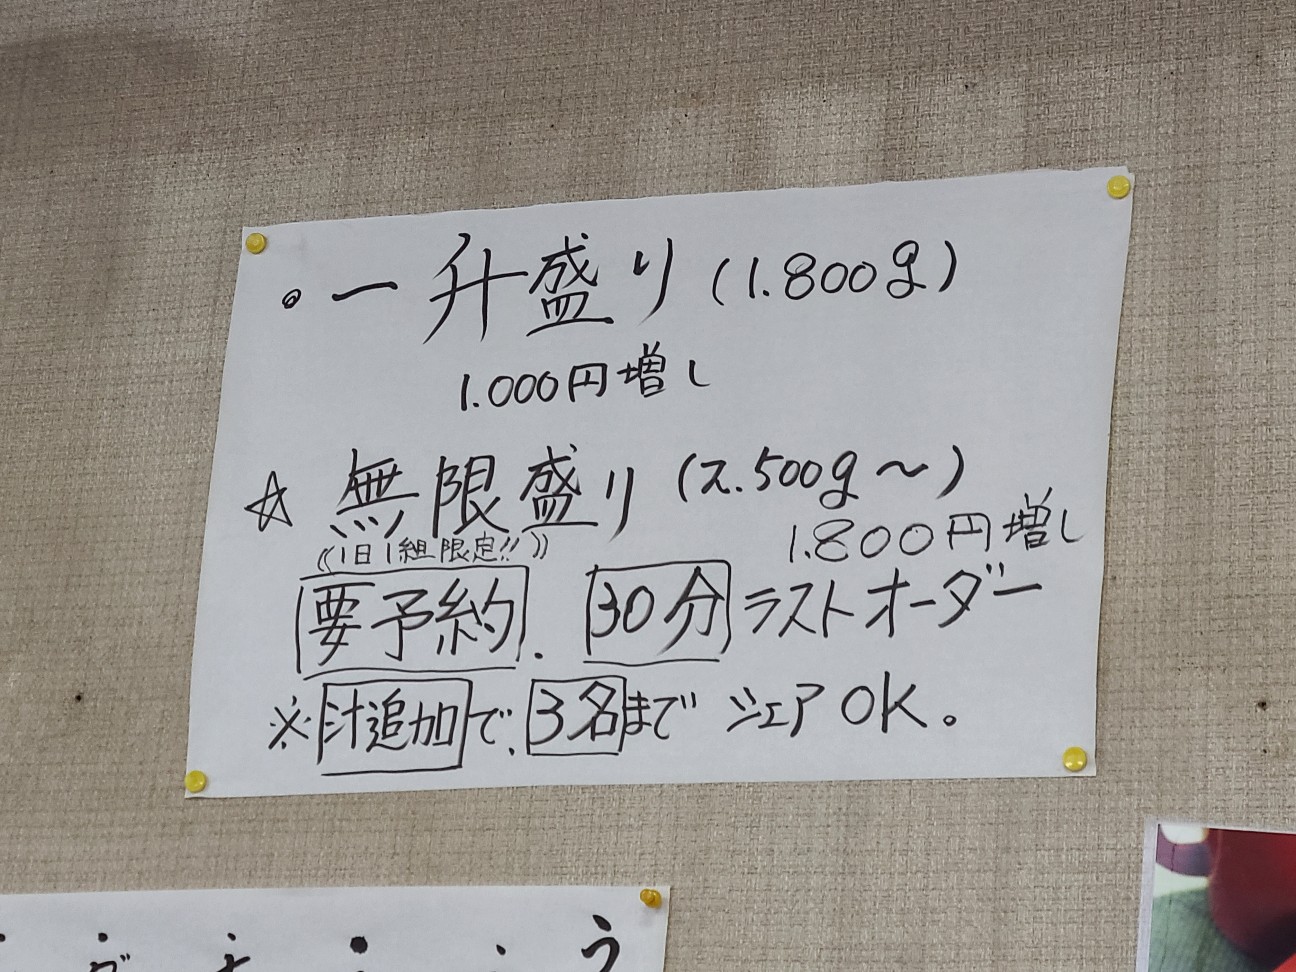 。一升盛り(1.800g)
1.000円増し
☆ 無限盛り(2.500g〜)
1.800円増し
《1日1組限定!!》
要予約. 30分ラストオーダー
※汁追加で、3名までシェアOK。